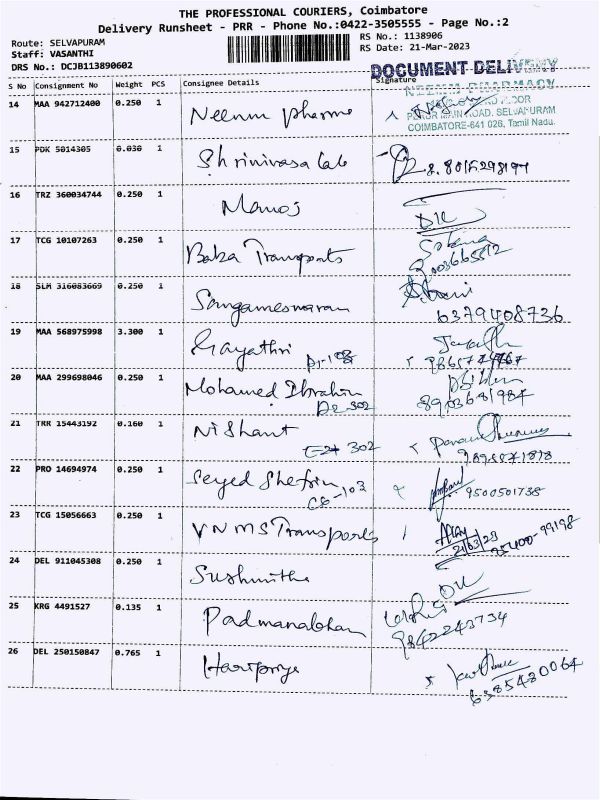 THE PROFESSIONAL COURIERS, Coimbatore
Delivery Runsheet - PRR - Phone No.:0422-3505555 - Page No.:2
Route: SELVAPURAM
Staff: VASANTHI
DRS No.: DCJB113890602
RS No.: 1138906
RS Date: 21-Mar-2023
DOCUMENT DELIVERY
S No Consignment No Weight PCS Consignee Details Signature
NEENU PHARMACY
PERUR MAIN ROAD, SELVAPURAM
COIMBATORE-641 026, Tamil Nadu.
14 MAA 942712400 0.250 1 Neenu pharma
15 PDK 5014305 0.030 1 Shrinivasa Lab
16 TRZ 360034744 0.250 1 Manoj
17 TCG 10107263 0.250 1 Baba Transports
18 SLM 316083669 0.250 1 Sangameswaran
6379408736
19 MAA 568975998 3.300 1 Gayathri
20 MAA 299698046 0.250 1 Mohamed Ibrahim
D2-302 8903681984
21 TRR 15443192 0.160 1 Nishant
302
22 PRO 14694974 0.250 1 Seyed Shefrin
C6-103 9500501738
23 TCG 15056663 0.250 1 VNMS Transports
21/03/23 95400-99198
24 DEL 911045308 0.250 1 Sushmitha
25 KRG 4491527 0.135 1 Padmanabhan
9842243734
26 DEL 250150847 0.765 1 Haripriya
6385480064